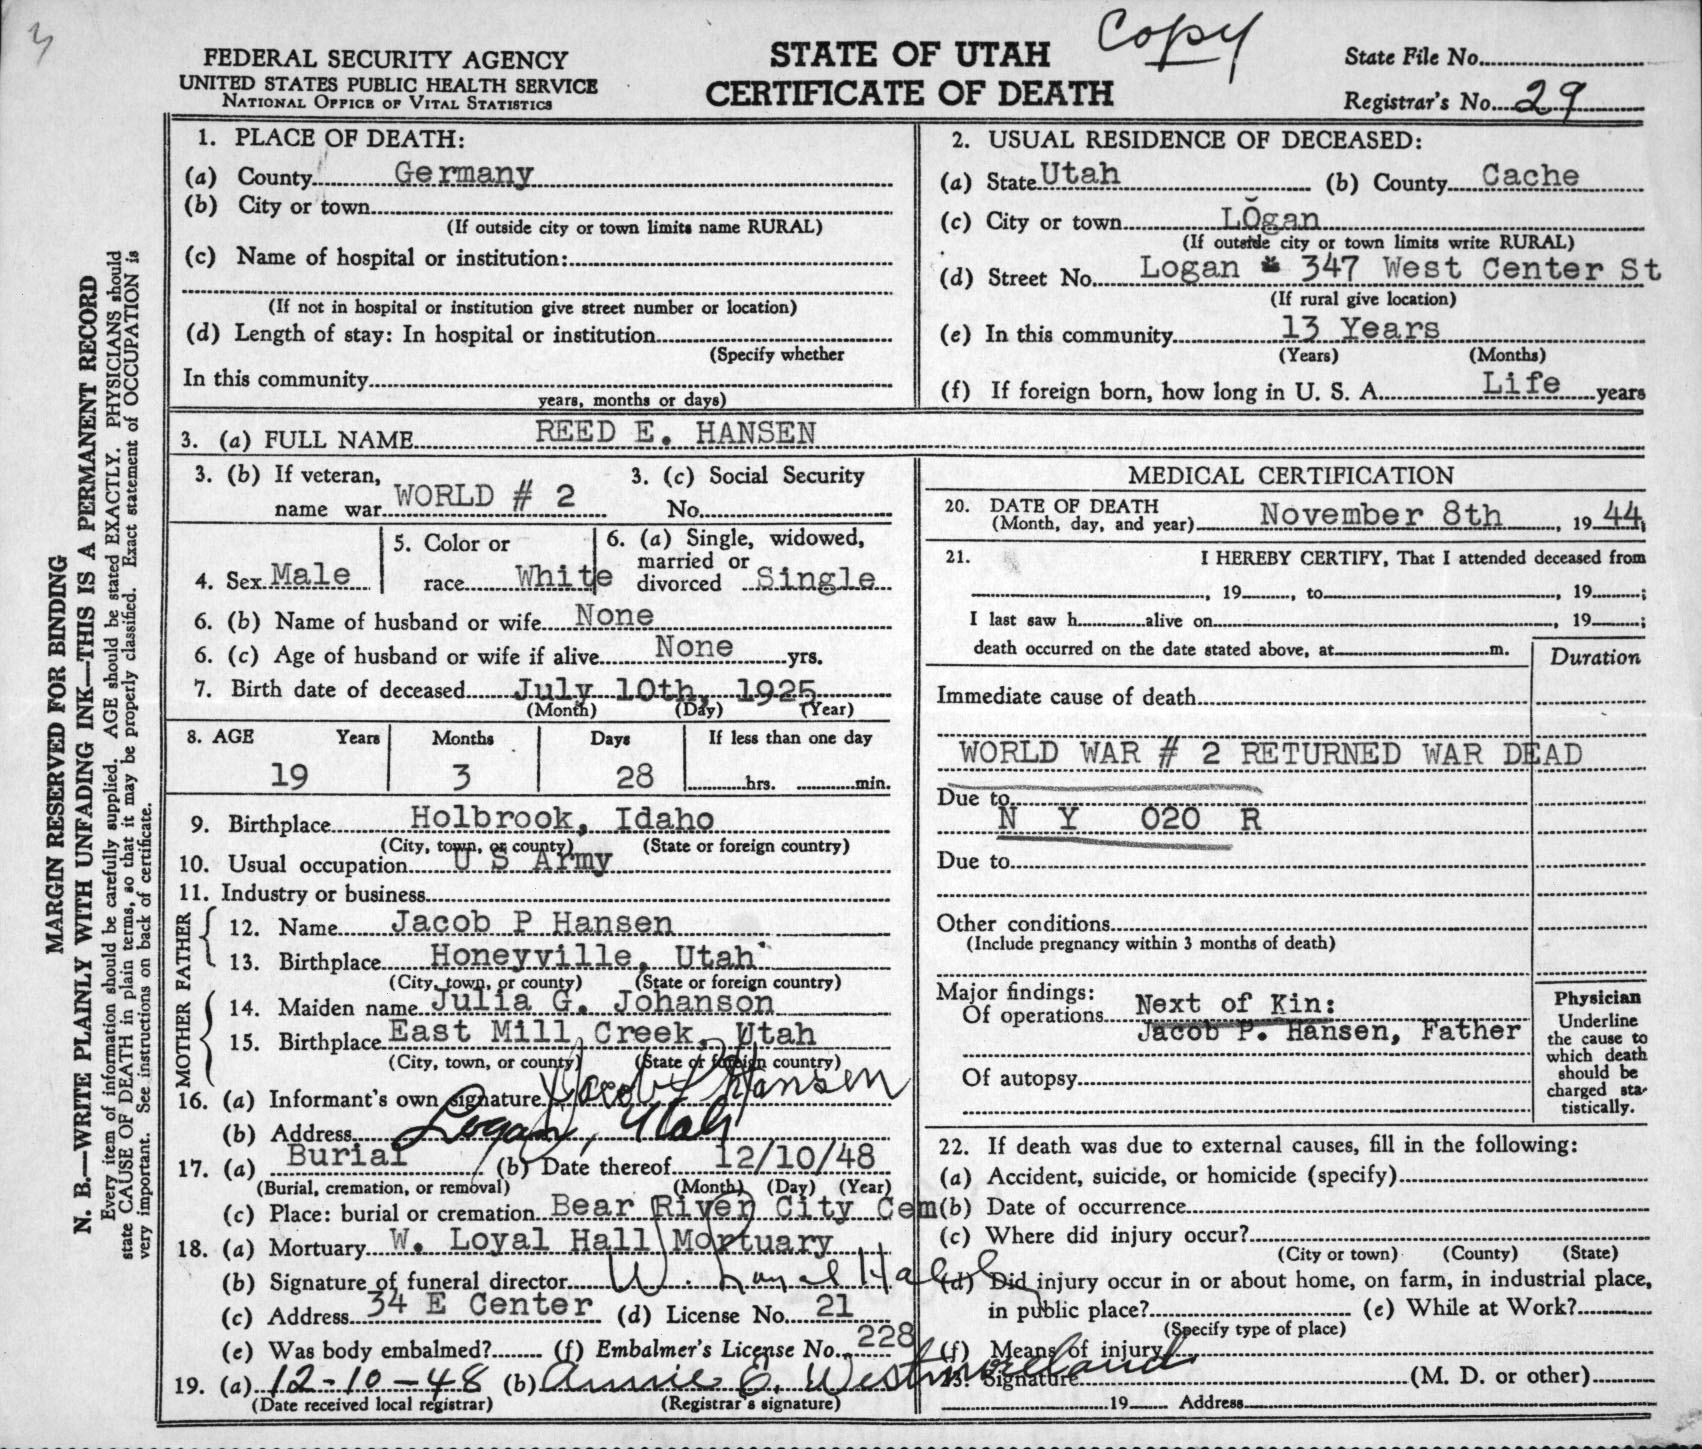 3
Copy
FEDERAL SECURITY AGENCY
UNITED STATES PUBLIC HEALTH SERVICE
NATIONAL OFFICE OF VITAL STATISTICS
STATE OF UTAH
CERTIFICATE OF DEATH
State File No.
Registrar's No. 29
MARGIN RESERVED FOR BINDING
N. B.—WRITE PLAINLY WITH UNFADING INK—THIS IS A PERMANENT RECORD
Every item of information should be carefully supplied. AGE should be stated EXACTLY. PHYSICIANS should
state CAUSE OF DEATH in plain terms, so that it may be properly classified. Exact statement of OCCUPATION is
very important. See instructions on back of certificate.
1. PLACE OF DEATH:
(a) County Germany
(b) City or town
(If outside city or town limits name RURAL)
(c) Name of hospital or institution:
(If not in hospital or institution give street number or location)
(d) Length of stay: In hospital or institution
(Specify whether
In this community
years, months or days)
2. USUAL RESIDENCE OF DECEASED:
(a) State Utah (b) County Cache
(c) City or town LOgan
(If outside city or town limits write RURAL)
(d) Street No. Logan 347 West Center St
(If rural give location)
(e) In this community 13 Years
(Years) (Months)
(f) If foreign born, how long in U. S. A. Life years
3. (a) FULL NAME REED E. HANSEN
3. (b) If veteran,
name war WORLD # 2
3. (c) Social Security
No.
4. Sex Male
5. Color or
race White
6. (a) Single, widowed,
married or
divorced Single
6. (b) Name of husband or wife None
6. (c) Age of husband or wife if alive None yrs.
7. Birth date of deceased July 10th, 1925
(Month) (Day) (Year)
8. AGE Years Months Days If less than one day
19 3 28 hrs. min.
9. Birthplace Holbrook, Idaho
(City, town, or county) (State or foreign country)
10. Usual occupation U S Army
11. Industry or business
FATHER
12. Name Jacob P Hansen
13. Birthplace Honeyville, Utah
(City, town, or county) (State or foreign country)
MOTHER
14. Maiden name Julia G. Johanson
15. Birthplace East Mill Creek, Utah
(City, town, or county) (State or foreign country)
16. (a) Informant's own signature Jacob P Hansen
(b) Address Logan, Utah
17. (a) Burial (b) Date thereof 12/10/48
(Burial, cremation, or removal) (Month) (Day) (Year)
(c) Place: burial or cremation Bear River City Cem
18. (a) Mortuary W. Loyal Hall Mortuary
(b) Signature of funeral director W. Loyal Hall
(c) Address 34 E Center (d) License No. 21
(e) Was body embalmed? (f) Embalmer's License No. 228
19. (a) 12-10-48 (b) Annie E. Westmoreland
(Date received local registrar) (Registrar's signature)
MEDICAL CERTIFICATION
20. DATE OF DEATH
(Month, day, and year) November 8th, 1944
21. I HEREBY CERTIFY, That I attended deceased from
, 19 , to , 19 ;
I last saw h alive on , 19 ;
death occurred on the date stated above, at m.
Duration
Immediate cause of death
WORLD WAR # 2 RETURNED WAR DEAD
Due to
N Y 020 R
Due to
Other conditions
(Include pregnancy within 3 months of death)
Major findings:
Of operations Next of Kin:
Jacob P. Hansen, Father
Of autopsy
Physician
Underline
the cause to
which death
should be
charged sta-
tistically.
22. If death was due to external causes, fill in the following:
(a) Accident, suicide, or homicide (specify)
(b) Date of occurrence
(c) Where did injury occur?
(City or town) (County) (State)
(d) Did injury occur in or about home, on farm, in industrial place,
in public place? (e) While at Work?
(Specify type of place)
(f) Means of injury
23. Signature (M. D. or other)
19 Address